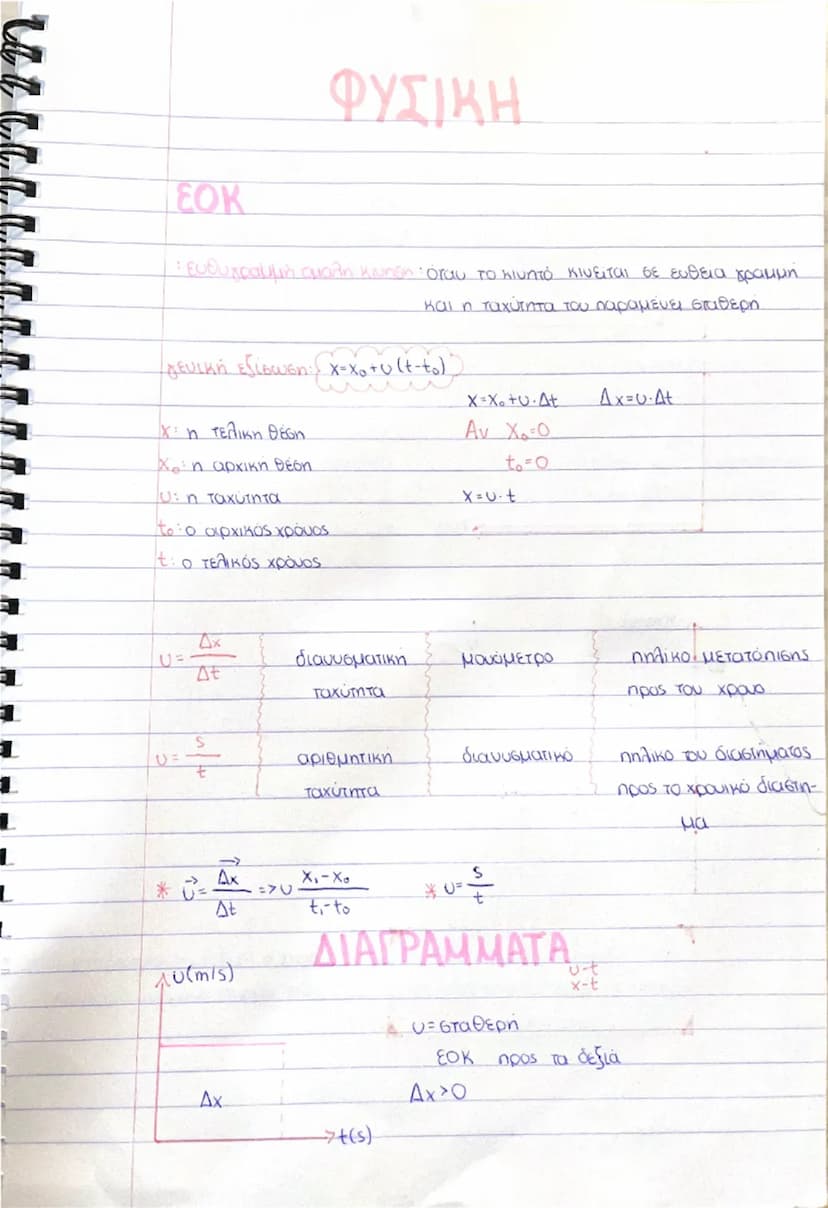 ΦΥΣΙΚΗ
ΕΟΚ
: Ευθυγραμμη ομαλη κινηση : όταν το κινητό κινείται σε ευθεια γραμμή
και η ταχύτητα του παραμένει σταθερη
γενική εξίσωση: x=x₀+υ(t-t₀)
x=x₀+υ·Δt Δx=υ·Δt
x: η τελικη θέση Αν x₀=0
x₀: η αρχικη θέση t₀=0
υ: η ταχύτητα x=υ·t
t₀: ο αρχικός χρόνος
t: ο τελικός χρόνος
υ= Δx/Δt διανυσματική μονόμετρο πηλικο μετατόπισης
ταχύτητα προς τον χρονο
υ= s/t αριθμητική διανυσματικό πηλικο του διαστήματος
ταχύτητα προς το χρονικό διαστη-
μα
* υ⃗= Δx⃗/Δt => υ x₁-x₀/t₁-t₀ * υ= s/t
ΔΙΑΓΡΑΜΜΑΤΑ
υ-t
x-t
υ(m/s)
υ=σταθερή
ΕΟΚ προς τα δεξιά
Δx Δx>0
t(s)